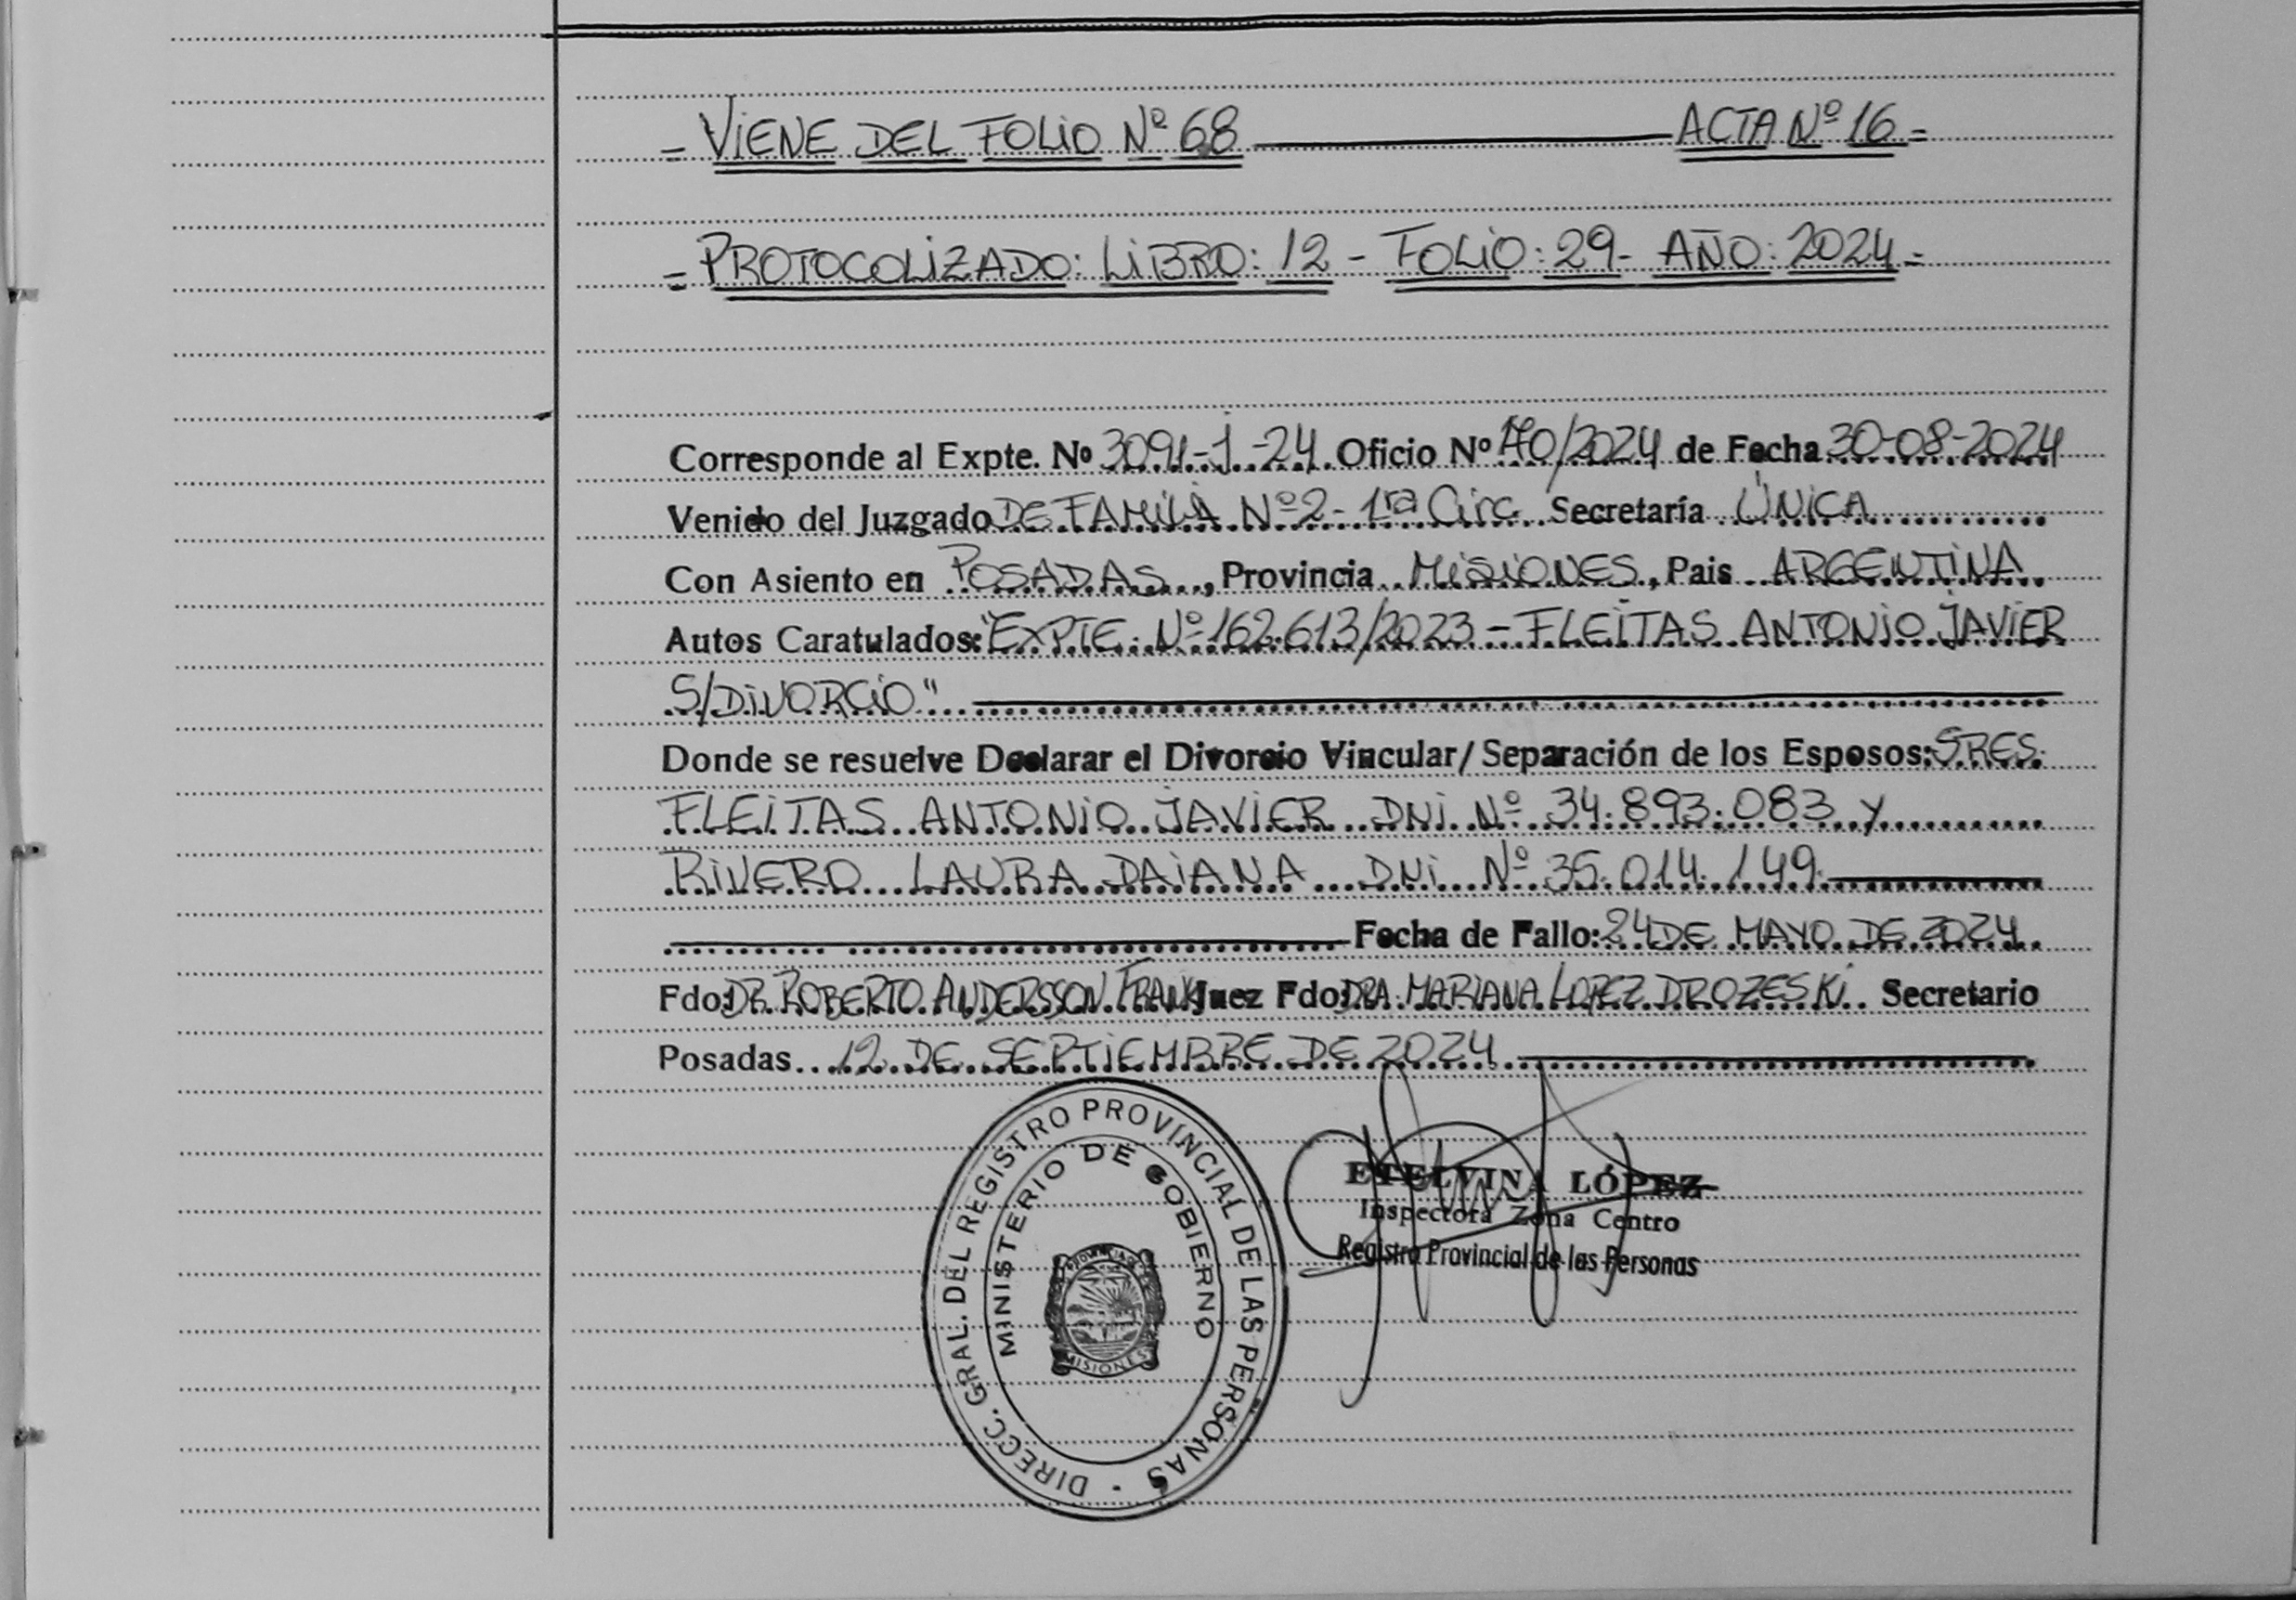 = VIENE DEL FOLIO Nº 68 ACTA Nº 16 =
= PROTOCOLIZADO: LIBRO: 12 - FOLIO: 29 - AÑO: 2024 =
Corresponde al Expte. Nº 3091-J-24 Oficio Nº /2024 de Fecha 30-08-2024
Venido del Juzgado DE FAMILIA Nº 2 - 1ra Circ. Secretaría ÚNICA
Con Asiento en POSADAS, Provincia MISIONES, Pais ARGENTINA
Autos Caratulados: "EXPTE. Nº 162.613/2023 - FLEITAS ANTONIO JAVIER
S/DIVORCIO"
Donde se resuelve Declarar el Divorcio Vincular/Separación de los Esposos: SRES.
FLEITAS ANTONIO JAVIER DNI Nº 34.893.083 Y
RIVERO LAURA DAIANA DNI Nº 35.014.149
Fecha de Fallo: 24 DE MAYO DE 2024
Fdo: DR. ROBERTO ANDERSSON FRANK Juez Fdo: DRA. MARIANA LOPEZ DROZESKI Secretario
Posadas 12 DE SEPTIEMBRE DE 2024
DIRECC. GRAL. DEL REGISTRO PROVINCIAL DE LAS PERSONAS
MINISTERIO DE GOBIERNO
MISIONES
ETELVINA LÓPEZ
Inspectora Zona Centro
Registro Provincial de las Personas